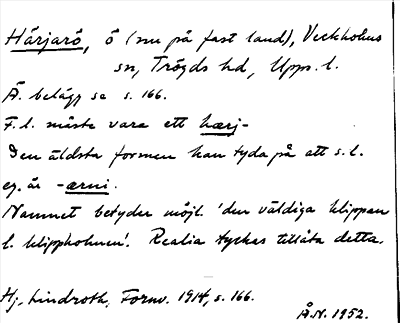 Härjarö, ö (nu på fast land), Veckholms
sn, Trögds hd, Upps. l.
Ä. belägg se s. 166.
F. l. måste vara ett hærj-
Den äldsta formen kan tyda på att s. l.
eg. är -ærni.
Namnet betyder möjl. 'den väldiga klippan
l. klippholmen'. Realia tyckas tillåta detta.
Hj. Lindroth, Fornv. 1914, s. 166.
Å.N. 1952.